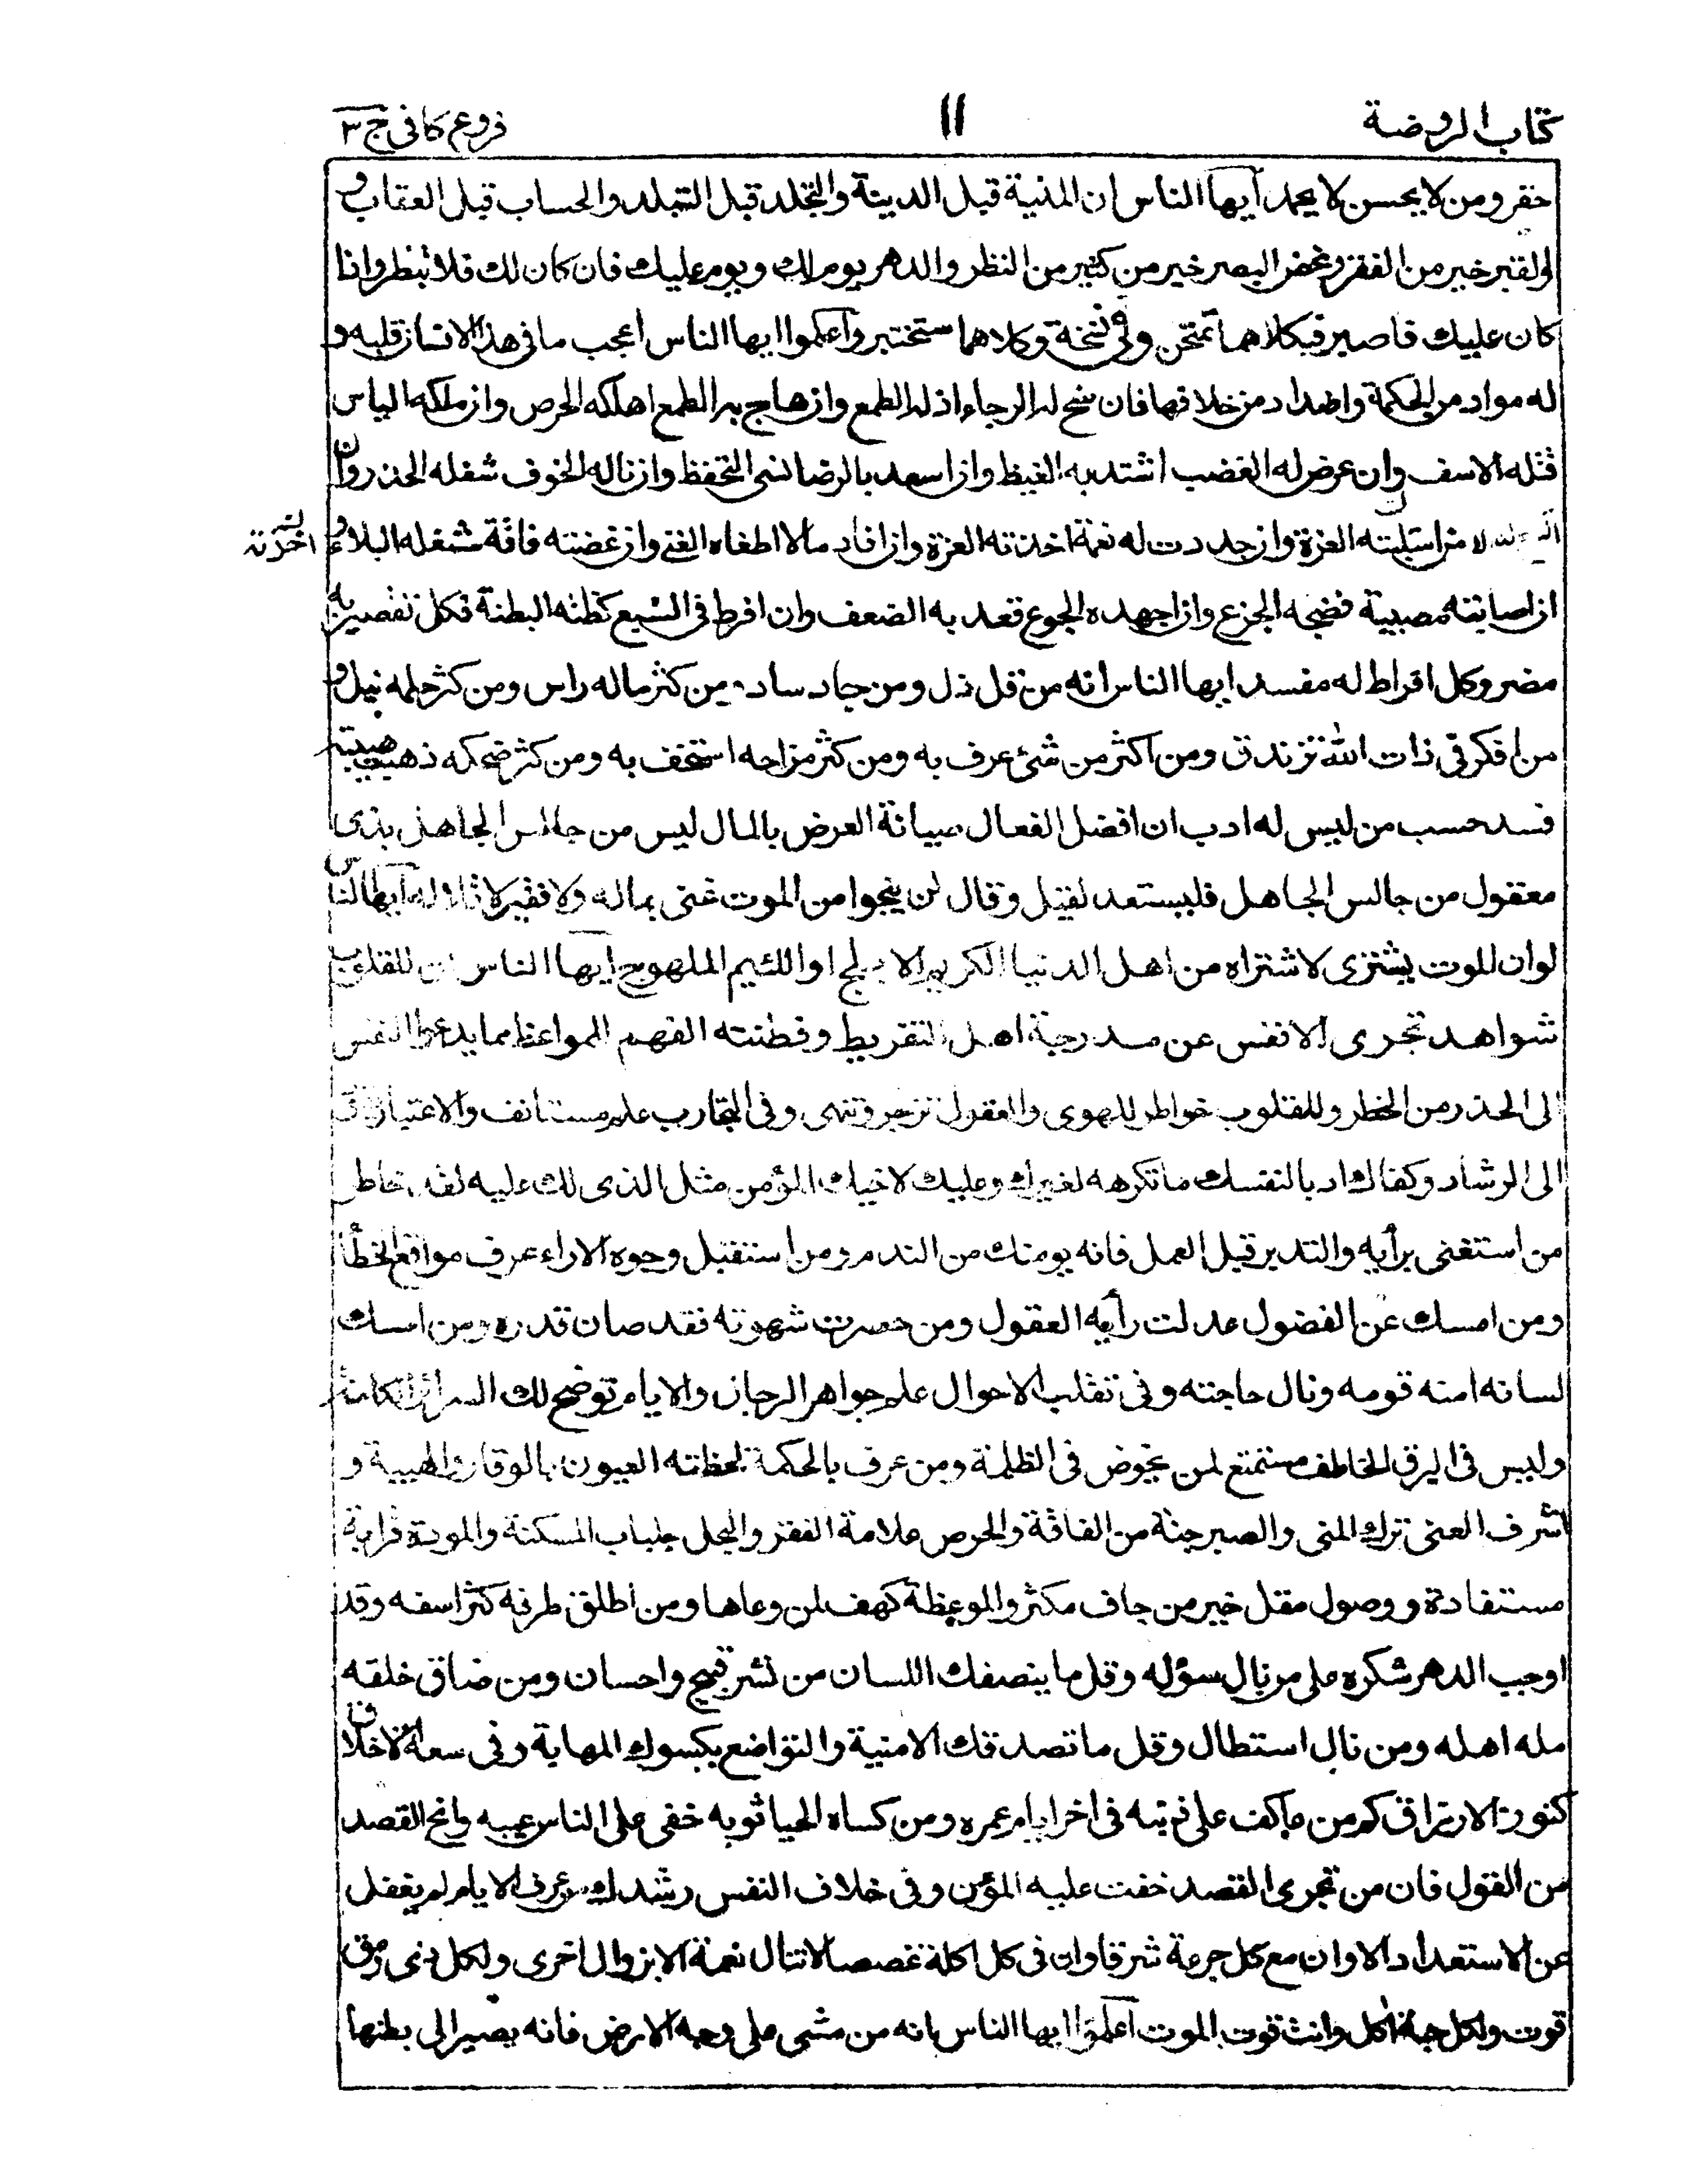 كتاب الروضة
١١
فروع كافى ج ٣
حقر ومن لا يحسن لا يحمد ايها الناس ان المنية قبل الدنية والتجلد قبل التبلد والحساب قبل العقاب و
القبر خير من الفقر وغض البصر خير من كثير من النظر والدهر يوم لك ويوم عليك فان كان لك فلا تبطر واذا
كان عليك فاصبر فبكلاهما تمتحن وفى نسخة وكلاهما ستختبر واعلموا ايها الناس اعجب ما فى هذا الانسان قلبه و
له مواد من الحكمة واضداد من خلافها فان سنح له الرجاء اذله الطمع وان هاج به الطمع اهلكه الحرص وان ملكه الياس
قتله الاسف وان عرض له الغضب اشتد به الغيظ وان اسعد بالرضا نسى التحفظ وان ناله الخوف شغله الحذر وان
اتسع له الامن استلبته العزة وان جددت له نعمة اخذته العزة وان افاد مالا اطغاه الغنى وان عضته فاقة شغله البلاء و
ان اصابته مصيبة فضحه الجزع وان اجهده الجوع قعد به الضعف وان افرط فى الشبع كظته البطنة فكل تقصير به
مضر وكل افراط له مفسد ايها الناس انه من قل ذل ومن جاد ساد ومن كثر ماله راس ومن كثر حلمه نبل و
من افكر فى ذات الله تزندق ومن اكثر من شئ عرف به ومن كثر مزاحه استخف به ومن كثر ضحكه ذهبت هيبته
فسد حسب من ليس له ادب ان افضل الفعال صيانة العرض بالمال ليس من جالس الجاهل بذى
معقول من جالس الجاهل فليستعد لقيل وقال لن ينجوا من الموت غنى بماله ولا فقير لاقلاله ايها الناس
لو ان الموت يشترى لاشتراه من اهل الدنيا الكريم الابلج او اللئيم الملهوج ايها الناس ان للقلوب
شواهد تجرى الانفس عن مدرجة اهل التفريط وفطنته الفهم للمواعظ مما يدعو النفس
الى الحذر من الخطر وللقلوب خواطر للهوى والعقول تزجر وتنهى وفى التجارب علم مستانف والاعتبار
الى الرشاد وكفاك ادبا لنفسك ما تكرهه لغيرك وعليك لاخيك المؤمن مثل الذى لك عليه لقد خاطر
من استغنى برأيه والتدبر قبل العمل فانه يومنك من الندم ومن استقبل وجوه الاراء عرف مواقع الخطأ
ومن امسك عن الفضول عدلت رأيه العقول ومن حصرت شهوته فقد صان قدره ومن امسك
لسانه امنه قومه ونال حاجته وفى تقلب الاحوال علم جواهر الرجال والايام توضح لك السرائر الكامنة
وليس فى البرق الخاطف مستمتع لمن يخوض فى الظلمة ومن عرف بالحكمة لحظته العيون بالوقار والهيبة و
اشرف الغنى ترك المنى والصبر جنة من الفاقة والحرص علامة الفقر والبخل جلباب المسكنة والمودة قرابة
مستفادة ووصول مقل خير من جاف مكثر والموعظة كهف لمن وعاها ومن اطلق طرفه كثر اسفه وقد
اوجب الدهر شكره على من نال سؤله وقل ما ينصفك اللسان من نشر قبيح واحسان ومن ضاق خلقه
مله اهله ومن نال استطال وقل ما تصدقك الامنية والتواضع يكسوك المهابة وفى سعة الاخلاق
كنوز الارزاق كم من عاكف على ذنبه فى اخر ايام عمره ومن كساه الحيا ثوبه خفى على الناس عيبه وانح القصد
من القول فان من تحرى القصد خفت عليه المؤن وفى خلاف النفس رشدك من عرف الايام لم يغفل
عن الاستعداد الا وان مع كل جرعة شرقا وان فى كل اكلة غصصا لا تنال نعمة الا بزوال اخرى ولكل ذى رمق
قوت ولكل حبة اكل وانت قوت الموت اعلموا ايها الناس بانه من مشى على وجه الارض فانه يصير الى بطنها